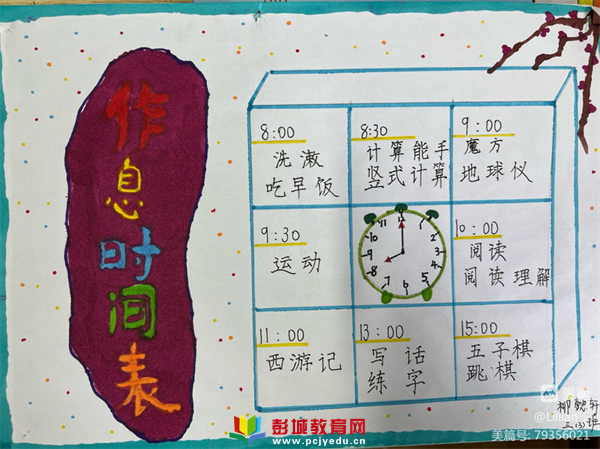 作息时间表
8:00
洗漱
吃早饭
8:30
计算能手
竖式计算
9:00
魔方
地球仪
9:30
运动
12
1
2
3
4
5
6
7
8
9
10
11
10:00
阅读
阅读理解
11:00
西游记
13:00
写话
练字
15:00
五子棋
跳棋
三(3)班
@Lillian
美篇号: 79356021
彭城教育网
www.pcjyedu.cn